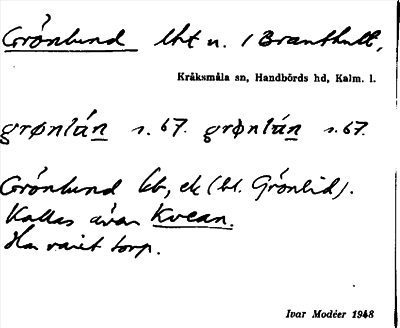 Grönlund lht n. i Branthult,
Kråksmåla sn, Handbörds hd, Kalm. l.
grønlún s. 67. grønlún s. 67.
Grönlund bb, ek (bl. Grönlid).
Kallas även Kvean.
Har varit torp.
Ivar Modéer 1948